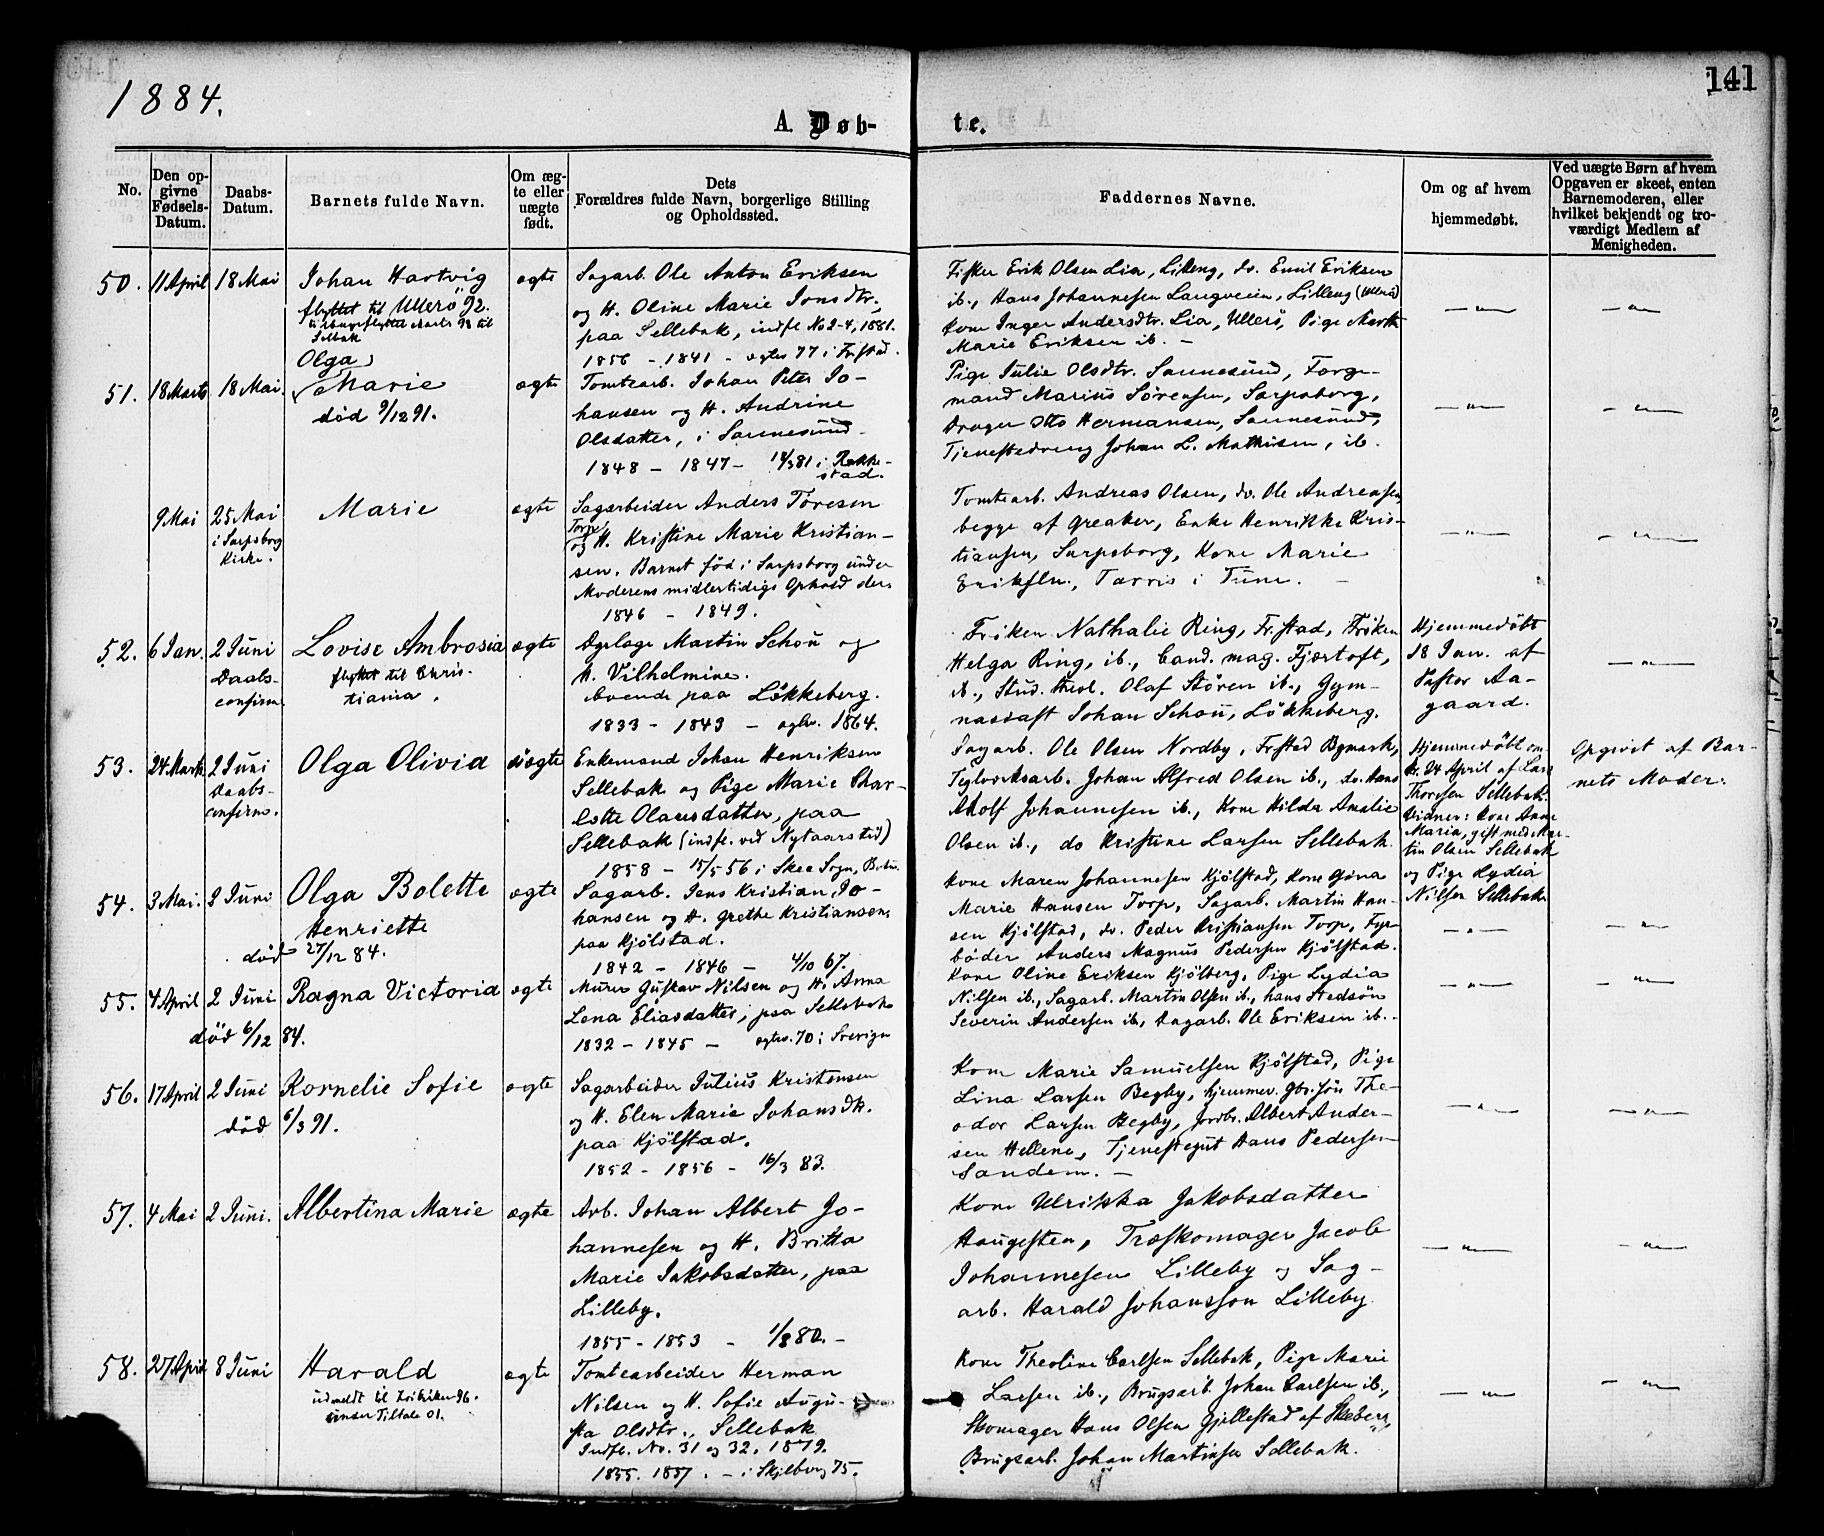 1884.
141
A. Døb-
te.
No.
Den op-
givne
Fødsels-
Datum.
Daabs-
Datum.
Barnets fulde Navn.
Om æg-
te eller
uægte
født.
Dets
Forældres fulde Navn, borgerlige Stilling
og Opholdssted.
Faddernes Navne.
Om og af hvem
hjemmedøbt.
Ved uægte Børn af hvem
Opgaven er skeet, enten
Barnemoderen, eller
hvilket bekjendt og tro-
værdigt Medlem af
Menigheden.
50. 11 April 18 Mai Johan Hartvig ægte
flyttet til Ullerö 92.
tilbageflyttet Marts 98 til
Selbak
Sagarb. Ole Anton Eriksen
og H. Oline Marie Jonsdtr.,
paa Sellebak, indfl No 2-4, 1881.
1856 - 1841 - ægtev. 77 i Fr.stad.
Fisker Erik Olsen Lia, Lilleng, do. Emil Eriksen
ib., Hans Johannesen Langveien, Lilleng (Ullerö)
Kone Inger Andersdtr. Lia, Ullerö, Pige Marthe
Marie Eriksen ib. -
- " -
- " -
51. 18 Marts 18 Mai. Olga
Marie ægte
död 9/12 91.
Tomtearb. Johan Peter Jo-
hansen og H. Andrine
Olsdatter, i Sannesund.
1848 - 1847 - 14/3 81 i Rakke-
stad.
Pige Julie Olsdtr. Sannesund, Forge-
mand Marius Sörensen, Sarpsborg,
Drager Otto Hermansen, Sannesund,
Tjenestedreng Johan L. Mathisen, ib.
- " -
- " -
9 Mai 25 Mai
i Sarpsborg
Kirke.
Marie ægte
Sagarbeider Anders Toresen
Torp,
og H. Kristine Marie Kristian-
sen. Barnet föd i Sarpsborg under
Moderens midlertidige Ophold der.
1846 - 1849.
Tomtearb. Andreas Olsen, do. Ole Andreasen
begge af Greaker, Enke Henrikke Kris-
tiansen, Sarpsborg, Kone Marie
Eriksen, Tarris i Tune. -
- " -
- " -
52. 6 Jan. 2 Juni
Daabs-
confirm.
Lovise Ambrosia ægte
flyttet til Chris-
tiania.
Dyrlæge Martin Schou og
H. Vilhelmine.
boende paa Lökkeberg.
1833 - 1843 - ægtev. 1864.
Fröken Nathalie Ring, Fr.stad, Fröken
Helga Ring, ib., Cand. mag. Fjærtoft,
ib., Stud. theol. Olaf Stören ib., Gym-
nasiast Johan Schou, Lökkeberg.
Hjemmedöbt
18 Jan. af
Pastor Aa-
gaard.
- " -
53. 24 Marts 2 Juni
Daabs-
confirm.
Olga Olivia uægte
Enkemand Johan Henriksen
Sellebak og Pige Marie Char-
lotte Olausdatter, paa
Sellebak (indfl. ved Nytaarstid)
1858 - 15/5 56 i Skee Sogn,
Dagarb. Ole Olsen Nordby, Fr.stad Bymark,
Teglværksarb. Johan Alfred Olsen ib., do. Hans
Adolf Johannesen ib., Kone Hilda Amalie
Olsen ib., do Kristine Larsen Sellebak.
Hjemmedöbt
24 April af Lars
Thoresen Sellebak.
Vidner: Kone Anne
Maria, gift med Mar-
tin Olsen Sellebak
og Pige Lydia
Nilsen Sellebak.
Opgivet af Bar-
nets Moder.
54. 3 Mai. 2 Juni Olga Bolette ægte
Henriette
död 27/12 84.
Sagarb. Jens Kristian Jo-
hansen og H. Grethe Kristiansen,
paa Kjölstad.
1842 - 1846 - 4/10 67.
Kone Maren Johannesen Kjölstad, Kone Gina
Marie Hansen Torp, Sagarb. Martin Han-
sen Kjölstad, do. Peder Kristiansen Torp, Fyr-
böder Anders Magnus Pedersen Kjölstad.
- " -
- " -
55. 4 April 2 Juni Ragna Victoria ægte
död 6/12 84.
Murer Gustav Nilsen og H. Anna
Lena Eliasdatter, paa Sellebak
1832 - 1845 - ægtev. 70 i Sverige
Kone Oline Eriksen Kjölberg, Pige Lydia
Nilsen ib., Sagarb. Martin Olsen ib., hans Stedsön
Severin Andersen ib., Dagarb. Ole Eriksen ib.
- " -
- " -
56. 17 April 2 Juni Kornelie Sofie ægte
död 6/3 91.
Sagarbeider Julius Kristensen
og H. Elen Marie Johansdtr.
paa Kjölstad.
1852 - 1856 - 16/3 83.
Kone Marie Samuelsen Kjölstad, Pige
Lina Larsen Begby, hjemmev. Gbr.sön The-
odor Larsen Begby, Jordbr. Albert Ander-
sen Hellene, Tjenestegut Hans Pedersen
Sandem. -
- " -
- " -
57. 4 Mai 2 Juni. Albertina Marie ægte
Arb. Johan Albert Jo-
hannesen og H. Britha
Marie Jakobsdatter, paa
Lilleby.
1855 - 1853 - 1/8 80. -
Kone Ulrikka Jakobsdatter
Haugesten, Træskomager Jacob
Johannesen Lilleby og Sag-
arb. Harald Johansson Lilleby
- " -
- " -
58. 27 April 8 Juni Harald ægte
udmeldt til 96.
under Tiltale 01.
Tomtearbeider Herman
Nilsen og H. Sofie Augu-
sta Olsdtr., Sellebak
Indfl. No. 31 og 32, 1879.
1855. 1857. - i Skjeberg 75.
Kone Theoline Carlsen Sellebak, Pige Marie
Larsen ib., Brugsarb. Johan Carlsen ib.,
Skomager Hans Olsen Gjellestad af Skeberg,
Brugsarb. Johan Martinsen Sellebak.
- " -
- " -